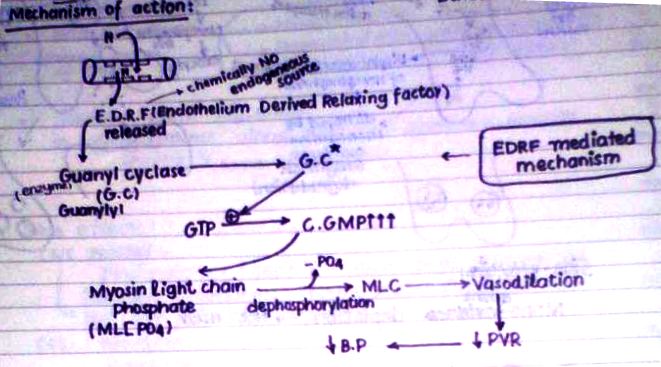 Mechanism of action:
N
chemically NO
endogeneous
source
E.D.R.F (Endothelium Derived Relaxing factor)
released
Guanyl cyclase
(enzyme)
(G.C)
Guanylyl
G.C*
EDRF mediated
mechanism
GTP
+
C.GMP↑↑↑
Myosin light chain
phosphate
(MLC PO4)
- PO4
dephosphorylation
MLC
Vasodilation
↓ PVR
↓ B.P